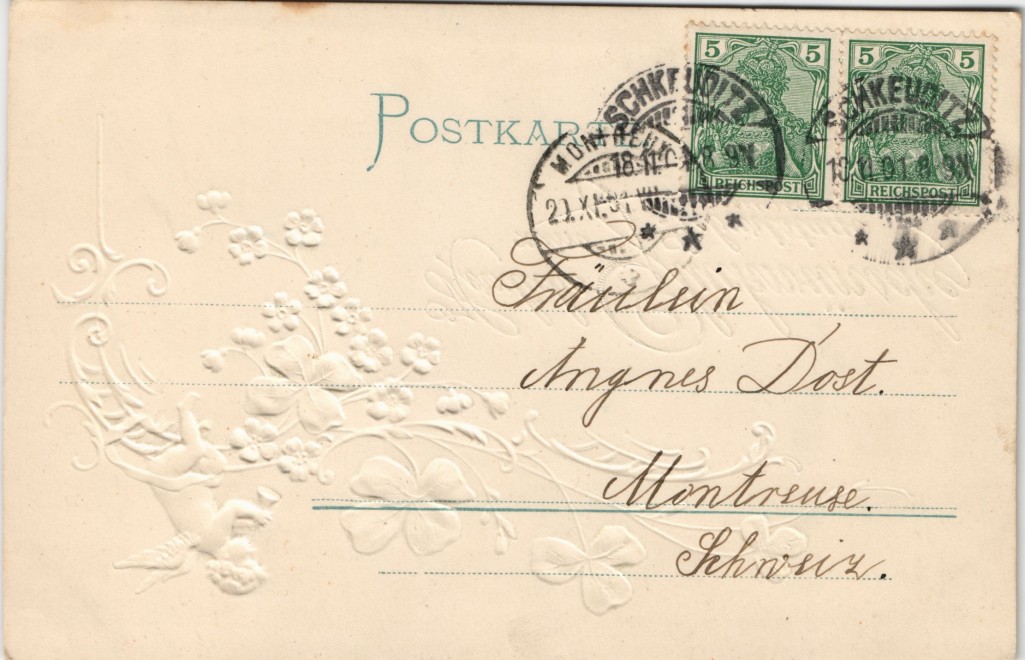 POSTKARTE
5 5
5 5
REICHSPOST
REICHSPOST
SCHKEUDITZ
18.11.01.8-9N
SCHKEUDITZ
18.11.01.8-9N
MONTREUX
20.XI.01.VII
Fräulein
Angnes Dost.
Montreuse.
Schweiz.